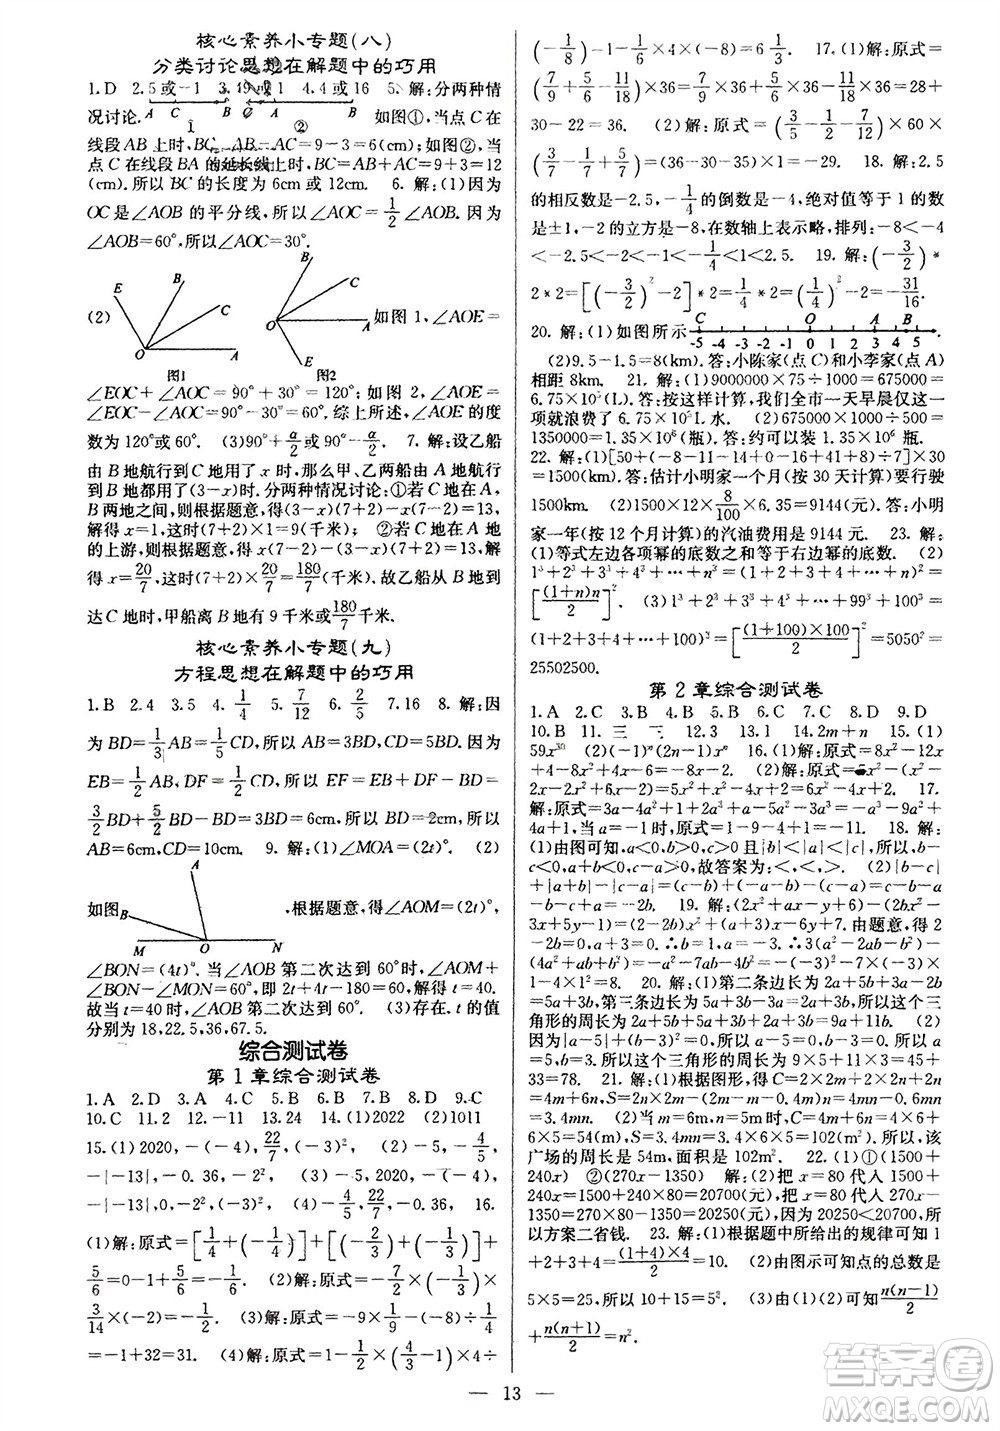 核心素养小专题(八)
分类讨论思想在解题中的巧用
1.D 2.5或-1 3.19或1 4.4或16 5.解:分两种情
况讨论. A C B B C A 如图①,当点C在
① ②
线段AB上时,BC=AB-AC=9-3=6(cm);如图②,当
点C在线段BA的延长线上时,BC=AB+AC=9+3=12
(cm).所以BC的长度为6cm或12cm. 6.解:(1)因为
OC是∠AOB的平分线,所以∠AOC=1/2∠AOB.因为
∠AOB=60°,所以∠AOC=30°.
(2) E B C O A B C O A E 如图1,∠AOE=
图1 图2
∠EOC+∠AOC=90°+30°=120°;如图2,∠AOE=
∠EOC-∠AOC=90°-30°=60°.综上所述,∠AOE的度
数为120°或60°. (3)90°+α/2或90°-α/2. 7.解:设乙船
由B地航行到C地用了x时,那么甲、乙两船由A地航行到
B地都用了(3-x)时.分两种情况讨论:①若C地在A,
B两地之间,则根据题意,得(3-x)(7+2)-x(7-2)=13,
解得x=1,这时(7+2)×1=9(千米); ②若C地在A地
的上游,则根据题意,得x(7+2)-(3-x)(7-2)=13,解
得x=20/7,这时(7+2)×20/7=180/7(千米).故乙船由B地到
达C地时,甲船离B地有9千米或180/7千米.
核心素养小专题(九)
方程思想在解题中的巧用
1.B 2.4 3.5 4.1/4 5.7/12 6.2/5 7.16 8.解:因
为BD=1/3AB=1/5CD,所以AB=3BD,CD=5BD.因为
EB=1/2AB,DF=1/2CD,所以EF=EB+DF-BD=
3/2BD+5/2BD-BD=3BD.所以3BD=6cm,BD=2cm.所以
AB=6cm,CD=10cm. 9.解:(1)∠MOA=(2t)°. (2)
如图 A B M O N .根据题意,得∠AOM=(2t)°,
∠BON=(4t)°.当∠AOB第二次达到60°时,∠AOM+
∠BON-∠MON=60°,即2t+4t-180=60,解得t=40.
故当t=40时,∠AOB第二次达到60°. (3)存在.t的值
分别为18,22.5,36,67.5.
综合测试卷
第1章综合测试卷
1.A 2.D 3.A 4.C 5.B 6.C 7.D 8.D 9.C
10.C 11.2 12.-11 13.24 14.(1)2022 (2)1011
15.(1)2020,-(-4),22/7,-(-3)³ (2)-5,-4/5,
-|-13|,-0.36,-2²,(-3)³ (3)-5,2020,-(-4),
-|-13|,0,-2²,(-3)³ (4)-4/5,22/7,-0.36 16.
(1)解:原式=[1/4+(-1/4)]+[(-5/6)+(-1/6)]+
5/6=0-1+5/6=-1/6. (2)解:原式=-1/2×(-3/7)×
3/14×(-2/3)=-1/2. (3)解:原式=-1-8÷(-1/4)
=-1+32=31. (4)解:原式=-4×(1/4-4/3-1)×4÷
(-1/8)-1-1=-4×4×(-8)-1-1=... 17.(1)解:原式=
(7/9+5/6-11/18)×36=7/9×36+5/6×36-11/18×36=28+
30-22=36. (2)解:原式=(3/5-1/2-7/12)×60×
(3/7-7/7+5/7)=(36-30-35)×1=-29. 18.解:2.5
的相反数是-2.5,-1/4的倒数是-4,绝对值等于1的数
是±1,-2的立方是-8,在数轴上表示略,排列:-8<-4
<-2.5<-2<-1<-1/4<1<2.5. 19.解:(-3/2)*
2*2=[(-3/2)²-2]*2=1/4*2=(1/4)²-2=-31/16.
20.解:(1)如图所示 C O A B -5 -4 -3 -2 -1 0 1 2 3 4 5 .
(2)9.5-1.5=8(km).答:小陈家(点C)和小李家(点A)
相距8km. 21.解:(1)9000000×75÷1000=675000=
6.75×10⁵(L).答:按这样计算,我们全市一天早晨仅这一
项就浪费了6.75×10⁵L水. (2)675000×1000÷500=
1350000=1.35×10⁶(瓶).答:按约可以装1.35×10⁶瓶.
22.解:(1)[50+(-8-11-14+0-16+41+8)÷7]×30=
1500(km).答:估计小明家一个月(按30天计算)要行驶
1500km. (2)1500×12×8/100×6.35=9144(元).答:小明
家一年(按12个月计算)的汽油费用是9144元. 23.解:
(1)等式左边各项幂的底数之和等于右边幂的底数. (2)
1³+2³+3³+4³+…+n³=(1+2+3+4+…+n)²=
[(1+n)n/2]². (3)1³+2³+3³+4³+…+99³+100³=
(1+2+3+4+…+100)²=[(1+100)×100/2]²=5050²=
25502500.
第2章综合测试卷
1.A 2.C 3.B 4.B 5.C 6.C 7.C 8.D 9.D
10.B 11.三 三 12.3 13.1 14.2m+n 15.(1)
59x³⁰ (2)(-1)ⁿ(2n-1)xⁿ 16.(1)解:原式=8x²-12x
+4x-8x²=-8x. (2)解:原式=4x²-5x²+x²-
2x-2x-6=-4x-6. 17.
解:原式=3a-4a²+1+2a-2a²-5a-5a²-3a³=-9a²+
4a+1,当a=-1时,原式=-1-9-4+1=-11. 18.解:
(1)由图可知,a<0,b>0,c>0且|b|<|a|<|c|,所以b-
c<0,a+b<0,c-a>0,故答案为:<,<,>. (2)|b-c|
+|a+b|-|c-a|=(c-b)+(-a-b)-(c-a)=c-b-
a-b-c+a=-2b. 19.解:(2x²+ax-y+6)-(2bx²-
3x+5y-1)=(2-2b)x²+(a+3)x-6y+7,由题意,得2-
2b=0,a+3=0.∴b=1,a=-3.∴3(a²-2ab-b²)-
(4a²+ab+b²)=-a²-7ab-4b²=-(-3)²-7×(-3)×
1-4×1²=8. 20.解:(1)第二条边长为2a+5b+3a-2b
=5a+3b,第三条边长为5a+3b-3a=2a+3b,所以这个三
角形的周长为2a+5b+5a+3b+2a+3b=9a+11b. (2)
因为|a-5|+(b-3)²=0,所以a-5=0,b-3=0,即a=5,
b=3.所以这个三角形的周长为9×5+11×3=45+33=
78. 21.解:(1)根据图形,得C=2m+2n+2m+2n=
6m+4n,S=2m×2n-m(2n-n-0.5n)=4mn-0.5mn=
3.4mn. (2)当m=6,n=5时,C=6m+4n=4×6+
6×5=54(m),S=3.4mn=3.4×6×5=102(m²).所以,该
广场的周长是54m,面积是102m². 22.(1)①(1500+
240x) ②(270x+1350) 解:(2)把x=80代入1500+
240x=1500+240×80=20700(元),把x=80代入270x+
1350=270×80-1350=20250(元),因为20250<20700,所
以方案二省钱. 23.解:(1)根据题中所给出的规律可知1
+2+3+4=(1+4)×4/2=10. (2)由图示可知点的总数是
5×5=25,所以10+15=5². (3)由(1)(2)可知n(n-1)/2
+n(n+1)/2=n².
— 13 —
答案圈
MXQE.COM